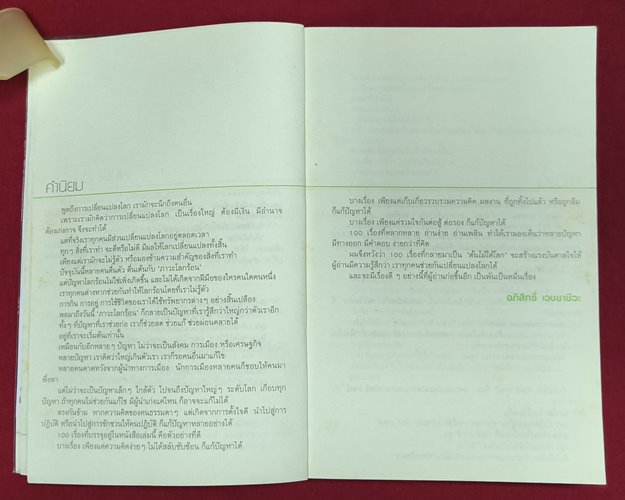 คำนิยม
พูดถึงการเปลี่ยนแปลงโลก เรามักจะนึกถึงคนอื่น
เพราะเรามักคิดว่าการเปลี่ยนแปลงโลก เป็นเรื่องใหญ่ ต้องมีเงิน มีอำนาจ
ต้องเก่งกาจ จึงจะทำได้
แต่ที่จริงเราทุกคนมีส่วนเปลี่ยนแปลงโลกอยู่ตลอดเวลา
ทุกๆ สิ่งที่เราทำ จะดีหรือไม่ดี มีผลให้โลกเปลี่ยนแปลงทั้งสิ้น
เพียงแต่เรามักจะไม่รู้ตัว หรือมองข้ามความสำคัญของสิ่งที่เราทำ
ปัจจุบันนี้หลายคนตื่นตัว ตื่นเต้นกับ 'ภาวะโลกร้อน'
แต่ปัญหาโลกร้อนไม่ใช่เพิ่งเกิดขึ้น และไม่ได้เกิดจากฝีมือของใครคนใดคนหนึ่ง
เราทุกคนต่างหากช่วยกันทำให้โลกร้อนโดยที่เราไม่รู้ตัว
การกิน การอยู่ การใช้ชีวิตของเราได้ใช้ทรัพยากรต่างๆ อย่างสิ้นเปลือง
พอมาถึงวันนี้ 'ภาวะโลกร้อน' ก็กลายเป็นปัญหาที่เรารู้สึกว่าใหญ่กว่าตัวเราอีก
ทั้งๆ ที่ปัญหาที่เราช่วยก่อ เราก็ช่วยลด ช่วยแก้ ช่วยผ่อนคลายได้
อยู่ที่เราจะเริ่มต้นเท่านั้น
เหมือนกับอีกหลายๆ ปัญหา ไม่ว่าจะเป็นสังคม การเมือง หรือเศรษฐกิจ
หลายปัญหา เราคิดว่าใหญ่เกินตัวเรา เราก็รอคนอื่นมาแก้ไข
หลายคนคาดหวังจากผู้นำทางการเมือง นักการเมืองหลายคนก็ชอบให้คนมา
พึ่งพา
แต่ไม่ว่าจะเป็นปัญหาเล็กๆ ใกล้ตัว ไปจนถึงปัญหาใหญ่ๆ ระดับโลก เกือบทุก
ปัญหา ถ้าทุกคนไม่ช่วยกันแก้ไข มีผู้นำเก่งแค่ไหน ก็อาจจะแก้ไม่ได้
ตรงกันข้าม หากความคิดของคนธรรมดาๆ แต่เกิดจากการตั้งใจดี นำไปสู่การ
ปฏิบัติ หรือนำไปสู่การชักชวนให้คนปฏิบัติ ก็แก้ปัญหาหลายอย่างได้
100 เรื่องที่บรรจุอยู่ในหนังสือเล่มนี้ คือตัวอย่างที่ดี
บางเรื่อง เพียงแค่ความคิดง่ายๆ ไม่ได้สลับซับซ้อน ก็แก้ปัญหาได้
บางเรื่อง เพียงแค่เก็บเกี่ยวรวบรวมความคิด ผลงาน ที่ถูกทิ้งไปแล้ว หรือถูกลืม
ก็แก้ปัญหาได้
บางเรื่อง เพียงแค่รวมใจกันต่อสู้ ต่อรอง ก็แก้ปัญหาได้
100 เรื่องที่หลากหลาย อ่านง่าย อ่านเพลิน ทำให้เรามองเห็นว่าหลายปัญหา
มีทางออก มีคำตอบ ง่ายกว่าที่คิด
ผมจึงหวังว่า 100 เรื่องที่กลายมาเป็น 'ต้นไม้ใต้โลก' จะสร้างแรงบันดาลใจให้
ผู้อ่านมีความรู้สึกว่า เราทุกคนช่วยกันเปลี่ยนแปลงโลกได้
และจะมีเรื่องดี ๆ อย่างนี้ที่ผู้อ่านก่อขึ้นอีก เป็นพันเป็นหมื่นเรื่อง
อภิสิทธิ์ เวชชาชีวะ